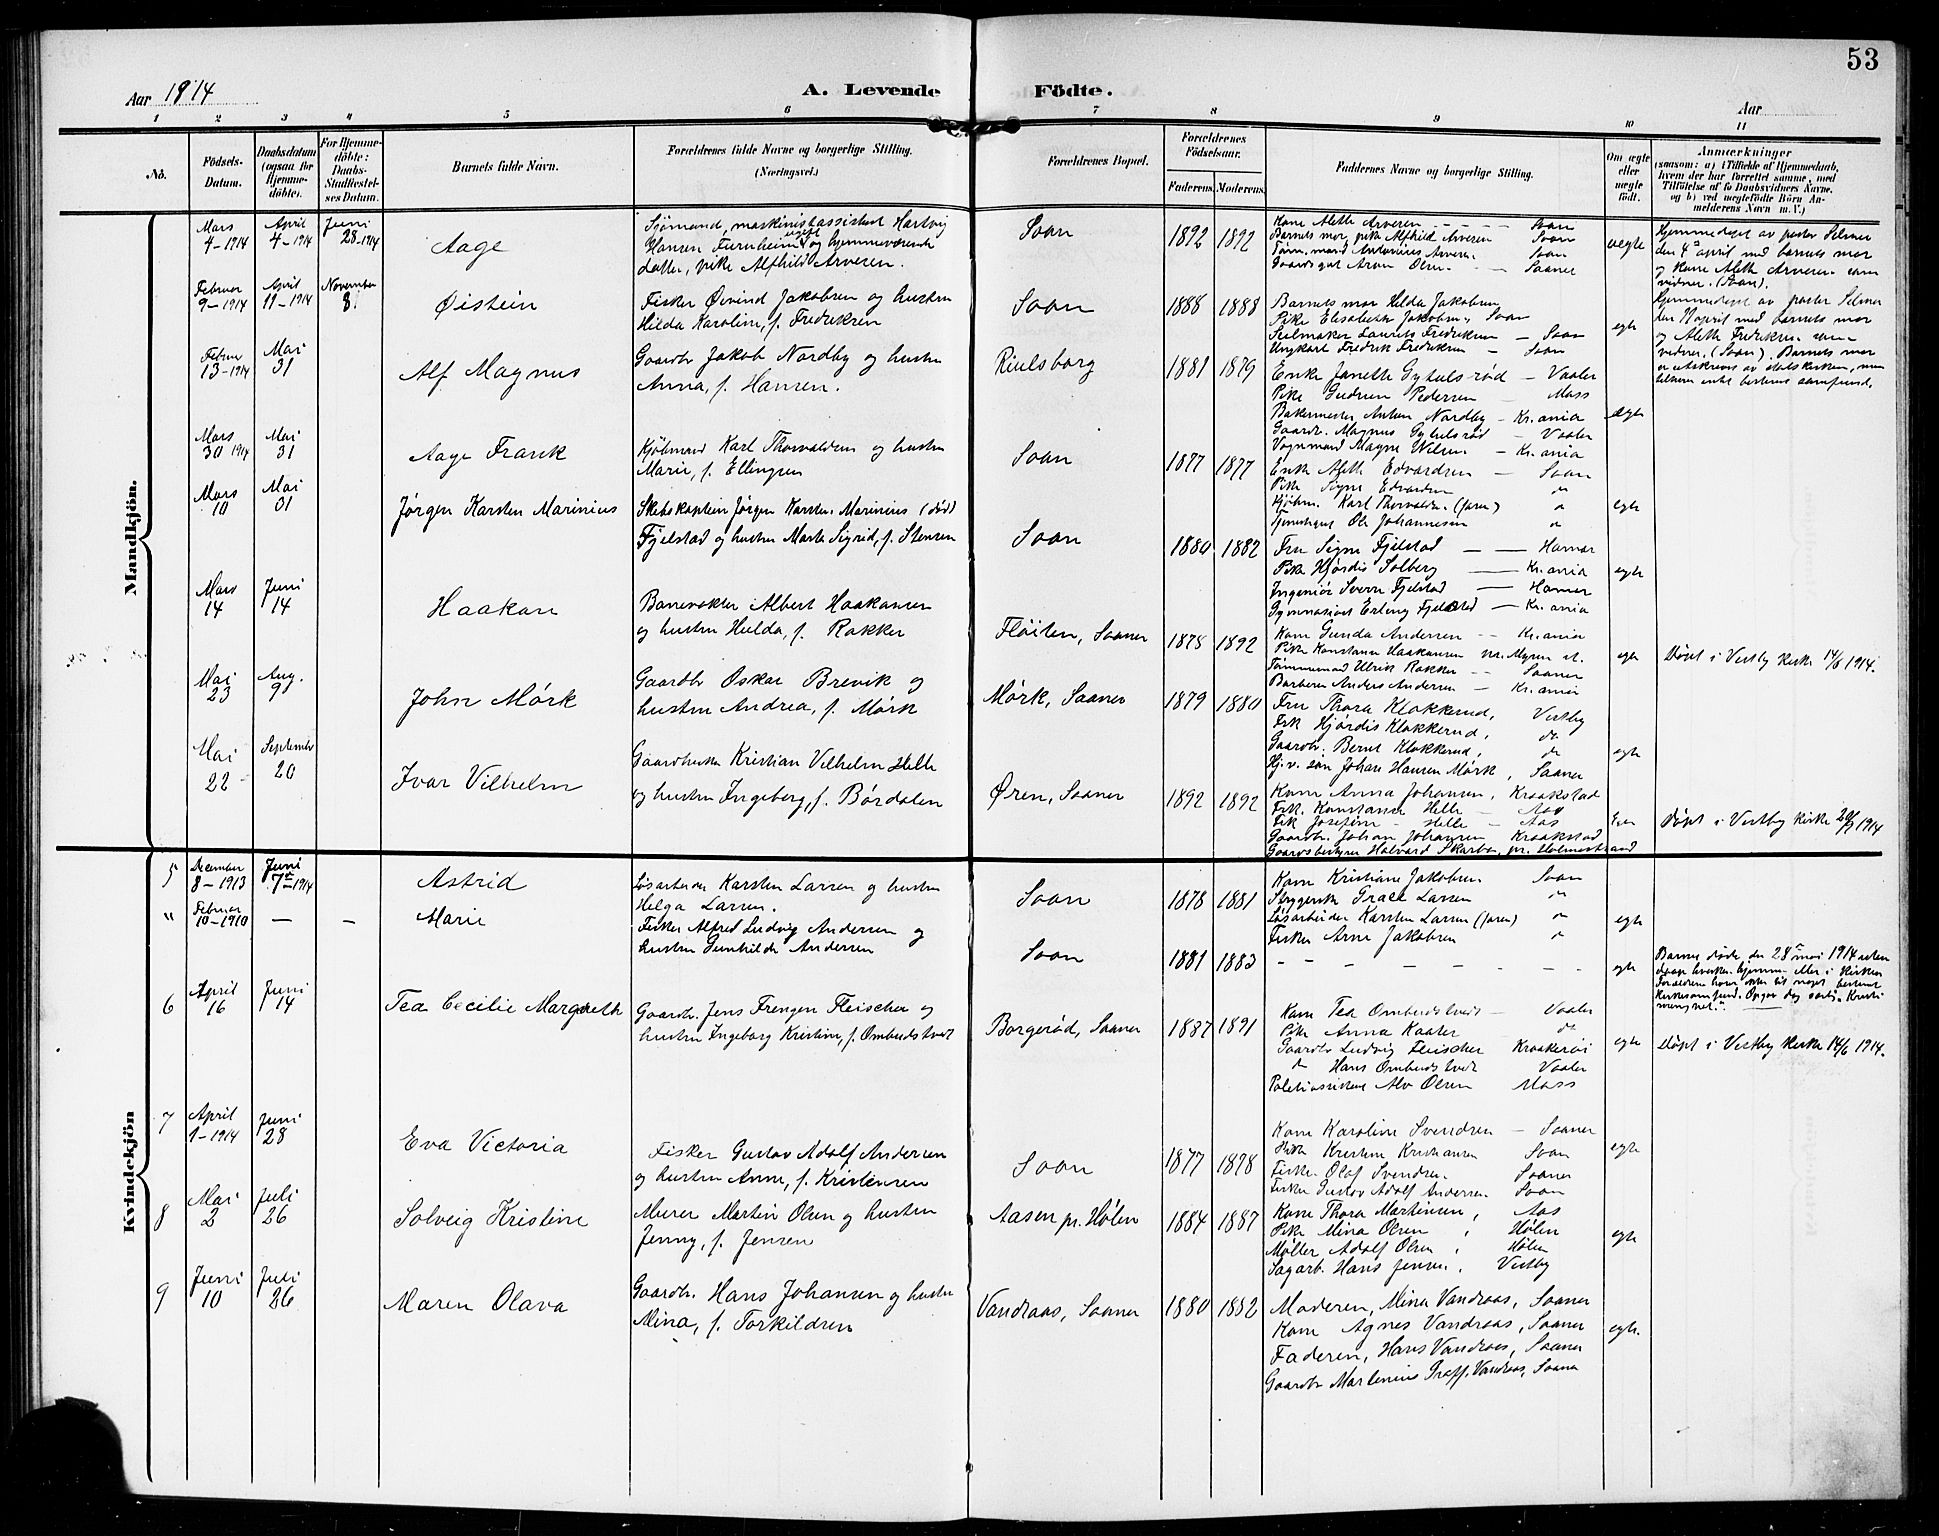 53
Aar 1914
A. Levende Födte.
Aar
1 2 3 4 5 6 7 8 9 10 11
No.
Födsels-Datum.
Daabsdatum (ogsaa for Hjemme-döbte).
For Hjemme-döbte: Daabs-Stadfæstel-ses Datum.
Barnets fulde Navn.
Forældrenes fulde Navne og borgerlige Stilling. (Næringsvei.)
Forældrenes Bopæl.
Forældrenes Födselsaar.
Faderens. Moderens.
Faddernes Navne og borgerlige Stilling.
Om ægte eller uægte födt.
Anmærkninger
(saasom: a) i Tilfælde af Hjemmedaab, hvem der har forrettet samme, med Tilföielse af to Daabsvidners Navne, og b) ved uægtefödte Börn An-melderens Navn m. V.)
Mandkjön.
Mars 4-1914
April 4-1914
Juni 28-1914
Aage
Sjømand, maskinistassistent Hartvig
Hansen Furuheim ugift og hjemmeværende
datter, pike Alfhild Arvesen.
Soon
1892 1892
Kone Aleth Arvesen - Soon
Barnets mor, pike Alfhild Arvesen Soon
Tøm.mand Andreas Arvesen Soon
Gaardsgut Arvin Olsen - Saaner
uegte
Hjemmedøpt av pastor Selmer
den 4de april med barnets mor
og kone Aleth Arvesen som
vidner. (Soon).
Februar 9-1914
April 11-1914
November 8.
Øistein
Fisker Øivind Jakobsen og hustru
Hilda Karoline, f. Fredriksen
Soon
1888 1888
Barnets mor Hilda Jakobsen
Pike Elisabeth Jakobsen, Soon
Seilmaker Laurits Fredriksen - Soon
Ungkarl Fredrik Fredriksen - Soon
egte
Hjemmedøpt av pastor Selmer
den 11 april med barnets mor
og Aleth Fredriksen som
vidner. (Soon). Barnets mor
er utskrevet av statskirken, men
tilhører intet bestemt samfund.
Februar 13-1914
Mai 31
Alf Magnus
Gaardbr. Jakob Nordby og hustru
Anna, f. Hansen.
Riulsborg
1881 1879
Enke Janette Gyhelsrød - Vaaler
Pike Gudrun Pedersen - Moss
Bakermester Anton Nordby - Kr.ania
Gaardb. Magnus Gyhelsrød - Vaaler
egte
Mars 30 1914
Mai 31
Aage Frank
Kjøbmand Karl Thorvaldsen og hustru
Marie, f. Ellingsen
Soon
1877 1877
Vognmand Magne Nilsen - Kr.ania
Enke Aleth Edvardsen - Soon
Pike Signe Edvardsen do
Kjøbm. Karl Thorvaldsen (faren) "
Tjenestegut Ole Johannesen "
egte
Mars 10
Mai 31
Jørgen Karsten Marinius
Skibskaptein Jørgen Karsten Marinius (død)
Fjelstad og hustru Marta Sigrid, f. Stensen
Soon
1880 1882
Fru Signe Fjelstad - Hamar
Pike Hjørdis Solberg - Kr.ania
Ingeniør Sverre Fjelstad - Hamar
Gymnasiast Erling Fjelstad - Kr.ania
egte
Mars 14
Juni 14
Haakon
Banevokter Albert Haakonsen
og hustru Hulda, f. Rakker
Fløiten, Saaner
1878 1892
Kone Gunda Andersen - Kr.ania
Pike Konstanse Haakonsen pr. Myren st.
Tømmermand Ulrik Rakker - Saaner
Barberer Anders Andersen - Kr.ania
egte
Døpt i Vestby kirke 14/6 1914.
Mai 23
Aug. 9
John Mørk
Gaardbr Oskar Brevik og
hustru Andrea, f. Mørk
Mørk, Saaner
1879 1880
Fru Thora Klokkerud, Vestby
Frk Hjørdis Klokkerud, do
Gaardbr. Bernt Klokkerud, do
Hj.v. søn Johan Hansen Mørk, Saaner
egte
Mai 22
September 20
Ivar Vilhelm
Gaardbruker Kristian Vilhelm Helle
og hustru Ingeborg, f. Børdalen
Øren, Saaner
1892 1892
Kone Anna Johansen, Kraakstad
Frk. Konstanse Helle - Aas
Frk Josefine Helle - Aas
Gaardbr. Johan Johansen Kraakstad
Gaardsbestyrer Halvard Skarbø, pr. Holmestrand
Døpt i Vestby kirke 20/9 1914
Kvindekjön
5
December 8-1913
Juni 7de 1914
Astrid
Løsarbeider Karsten Larsen og hustru
Helga Larsen.
Soon
1878 1881
Kone Kristiane Jakobsen Soon
Strygerske Grace Larsen "
Løsarbeider Karsten Larsen (faren) "
Fisker Arne Jakobsen "
egte
"
Februar 10-1910
- -
Marie
Fisker Alfred Ludvig Andersen og
hustru Gunhilda Andersen
Soon
1881 1883
- - - - - - -
egte
Barnet døde den 28 mai 1914 uten
daap hverken hjemme eller i kirken
Forældrene hører ikke til noget bestemt
kirkesamfund.
6
April 16
Juni 14
Tea Cecilie Margreth
Gaardbr. Jens Frengen Fleischer og
hustru Ingeborg Kristine, f. Ombudstvedt
Borgerød, Saaner
1887 1891
Kone Tea Ombudstvedt - Vaaler
Pike Anna Kaater do
Gaardbr Ludvig Fleischer Kraakerøi
" Hans Ombudstvedt Vaaler
Politiassistent Alv Olsen Moss
egte
Døpt i Vestby kirke 14/6 1914.
7
April 1-1914
Juni 28
Eva Victoria
Fisker Gustav Adolf Andersen
og hustru Anne, f. Kristensen
Soon
1877 1878
Kone Karoline Svendsen - Saaner
Pike Kristine Kristiansen Soon
Fisker Olaf Svendsen Saaner
Fisker Gustav Adolf Andersen Soon
egte
8
Mai 2
Juli 26
Solveig Kristine
Murer Martin Olsen og hustru
Jenny, f. Jensen
Aasen pr. Hølen
1884 1887
Kone Thora Martinsen, Aas
Pike Mina Olsen, Hølen
Møller Adolf Olsen, Hølen
Sagarb. Hans Jensen, Vestby
egte
9
Juni 10
Juli 26
Maren Olava
Gaardbr. Hans Johansen og hustru
Mina, f. Torkildsen
Vandraas, Saaner
1880 1882
Moderen, Mina Vandraas, Saaner
Kone Agnes Vandraas, Saaner
Faderen, Hans Vandraas, Saaner
Gaardbr Martinius Graff. Vandraas, Saaner
egte.